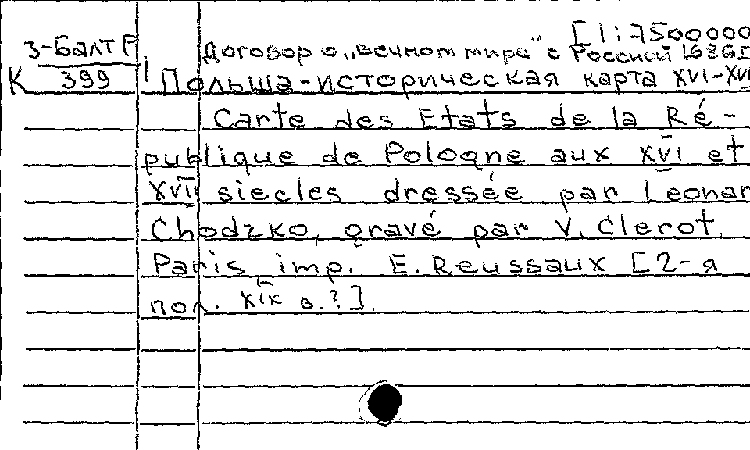 [1:7500000
З-БАЛТ Р Договор о „вечном мире“ с Россией 1686
К 399 Польша-историческая карта XVI-XVI
Carte des Etats de la Ré-
publique de Pologne aux XVI et
XVII siecles dressée par Leonar
Chodzko, gravé par V. Clerot.
Paris imp. E. Reussaux [2-я
пол. XIX в.?]